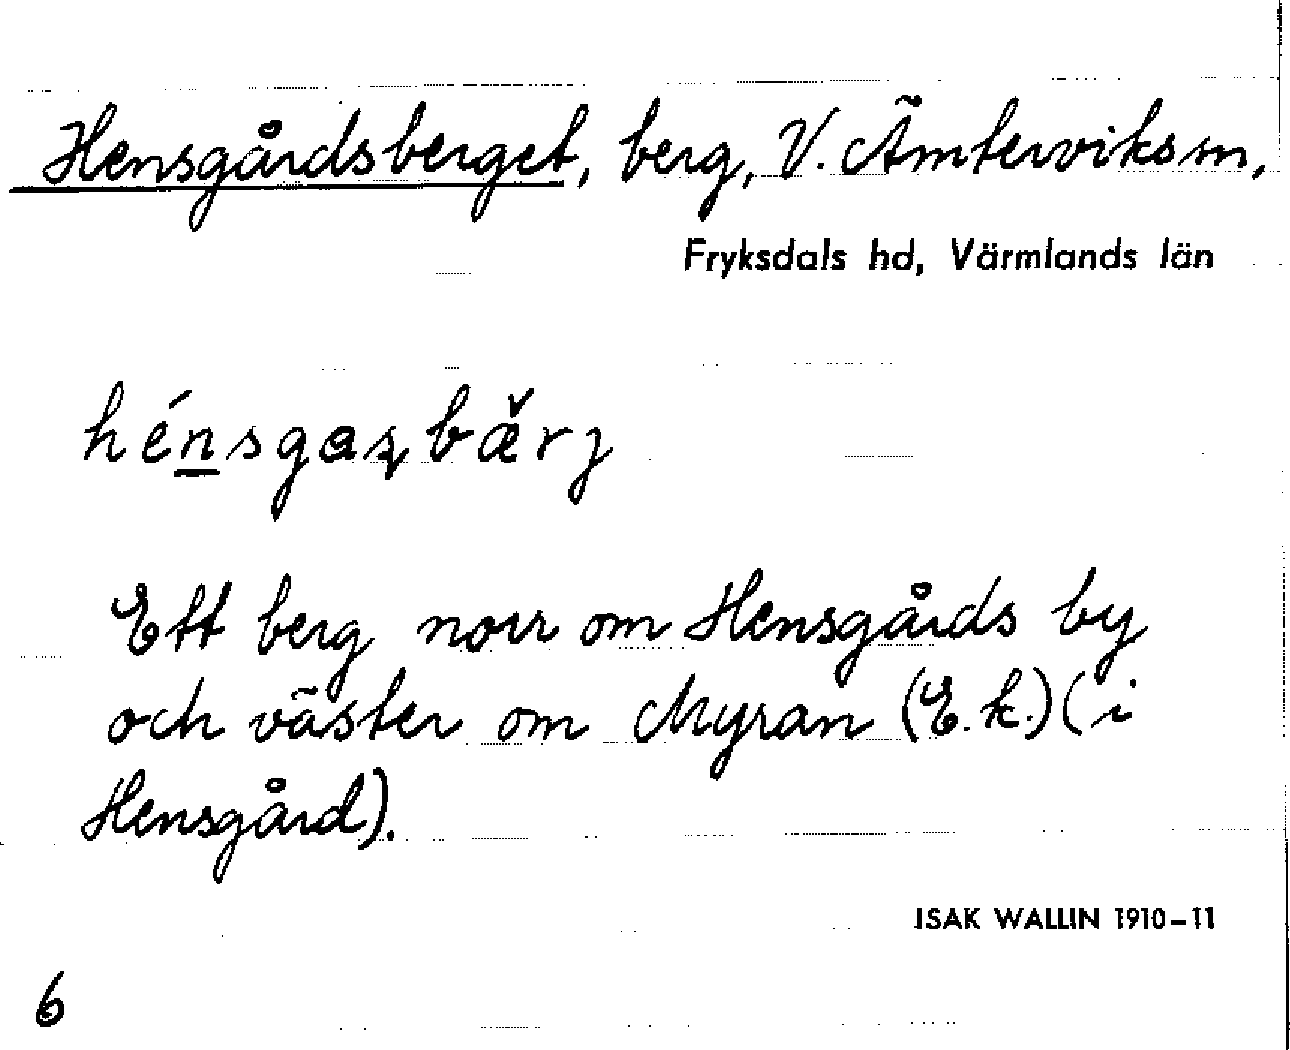 Hensgårdsberget, berg, V. Ämterviks sn,
Fryksdals hd, Värmlands län
hénsgaʂbæ̌rj
Ett berg norr om Hensgårds by
och väster om Myran (E.k.) (i
Hensgård).
ISAK WALLIN 1910–11
6